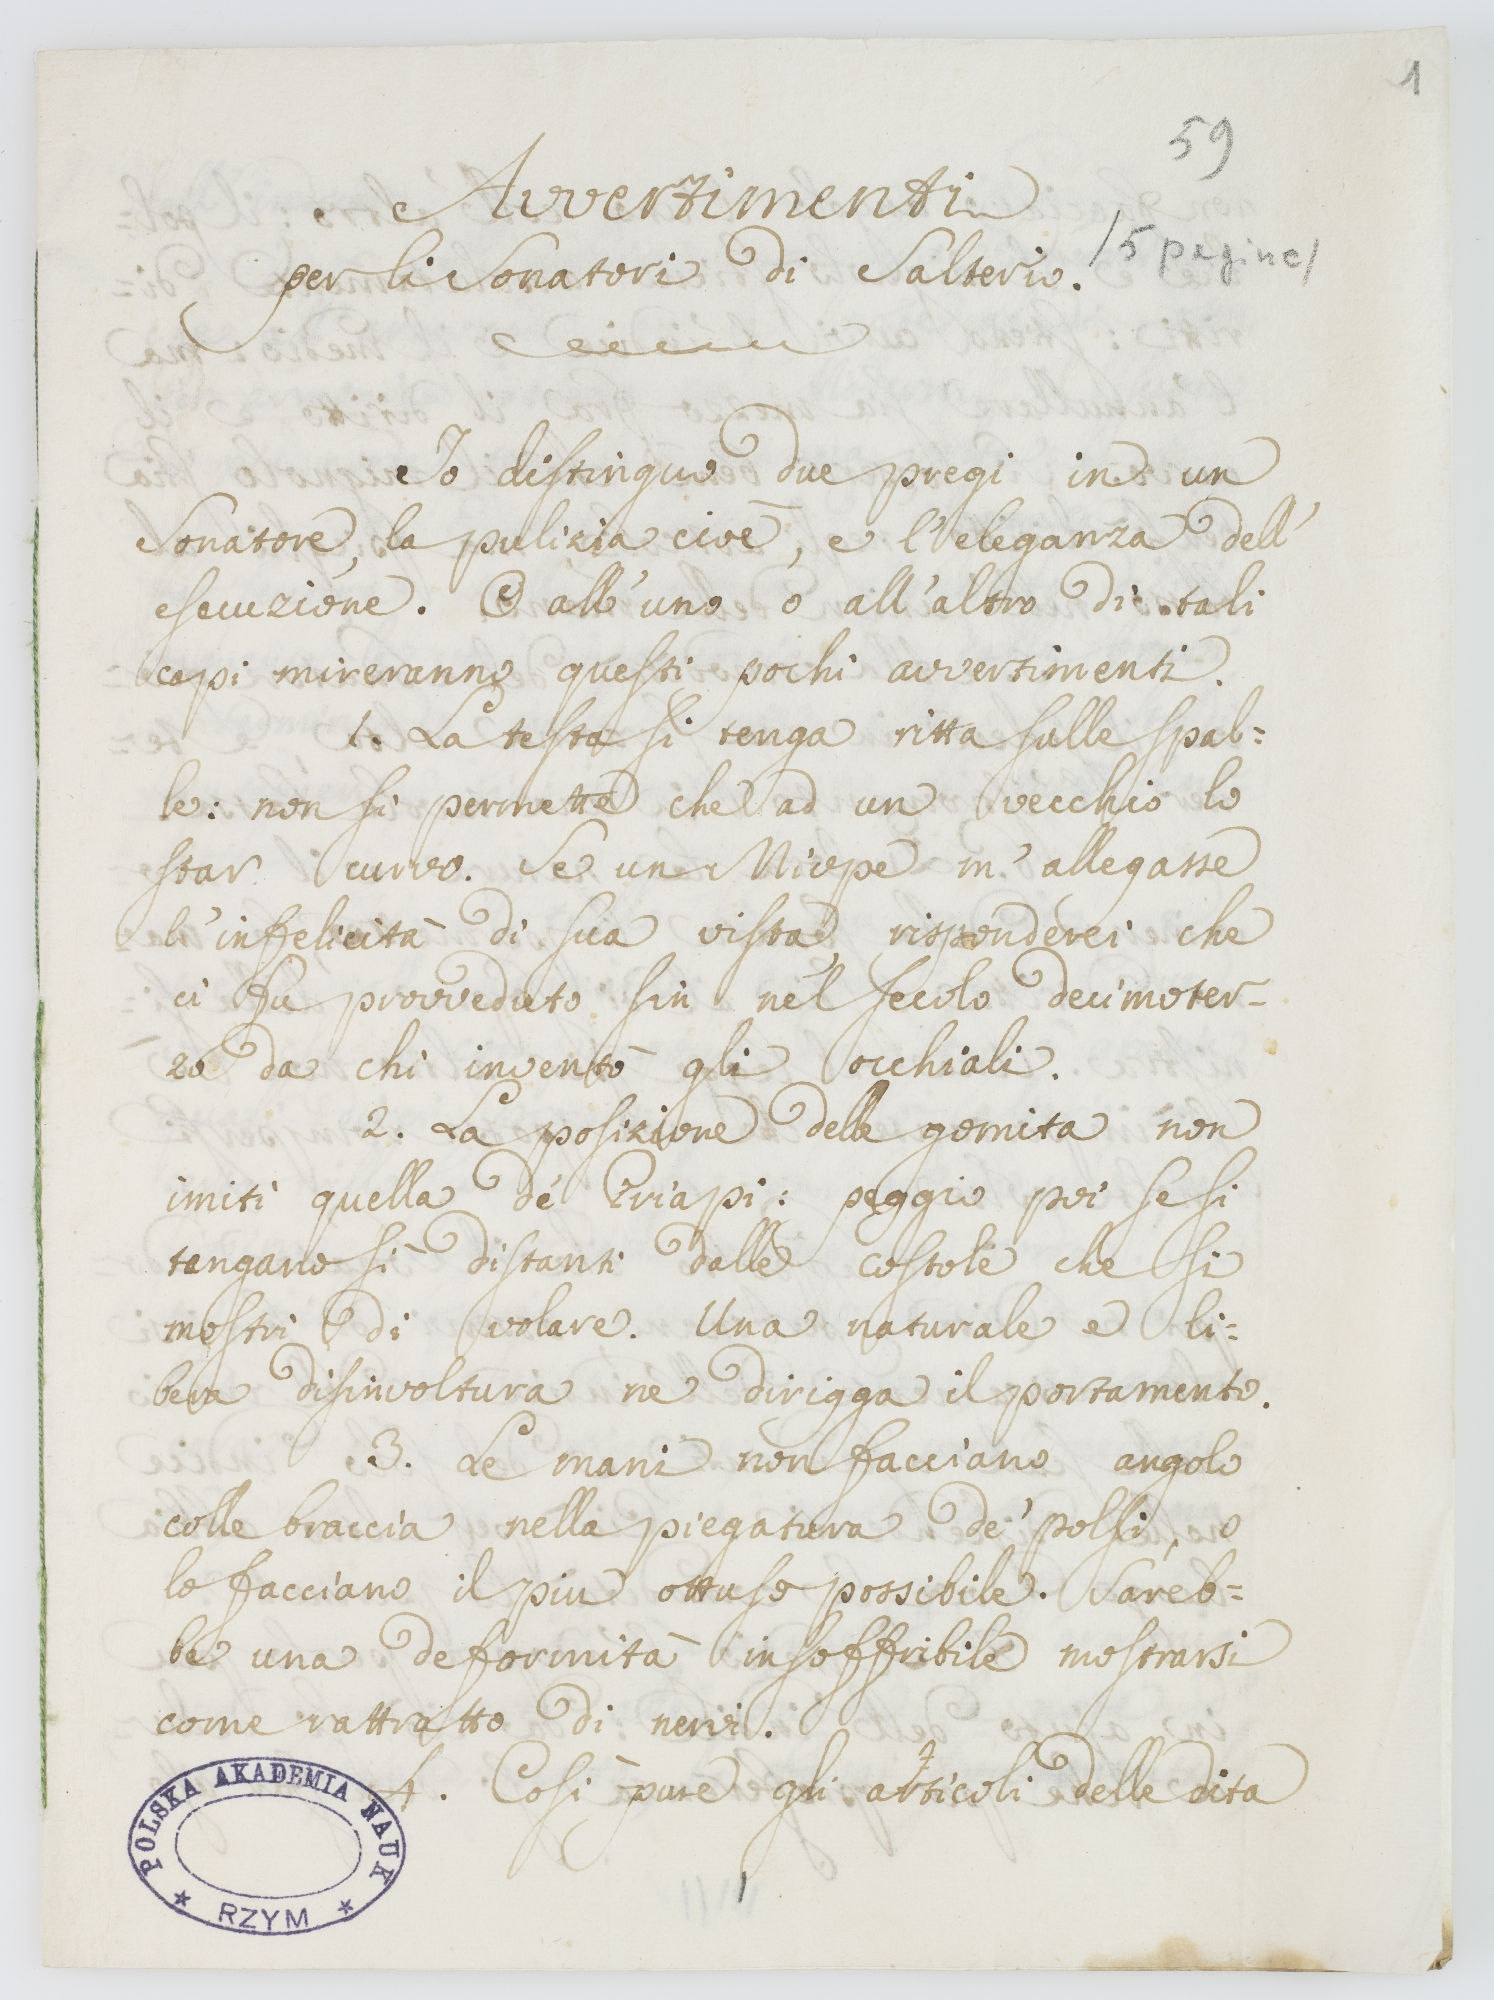 1
59
Avvertimenti
per li Sonatori di Salterio. /5 pagine/
Io distinguo due pregi in un
Sonatore, la pulizia cioè, e l'eleganza dell'
esecuzione. O all'uno o all'altro di tali
capi mireranno questi pochi avvertimenti.
1. La testa si tenga ritta sulle spal=
le: non si permette che ad un vecchio lo
star curvo. Se un Miope m'allegasse
l'infelicità di sua vista, risponderei che
ci fu provveduto sin nel secolo decimoter-
zo da chi inventò gli occhiali.
2. La posizione delle gomita non
imiti quella de' Priapi: peggio poi se si
tengano sì distanti dalle costole che si
mostri di volare. Una naturale e li=
bera disinvoltura ne dirigga il portamento.
3. Le mani non facciano angolo
colle braccia nella piegatura de' polsi, o
lo facciano il piu ottuso possibile. Sareb=
be una deformità insoffribile mostrarsi
come rattratto di nervi.
4. Così pure gli articoli delle dita
POLSKA AKADEMIA NAUK
RZYM
1